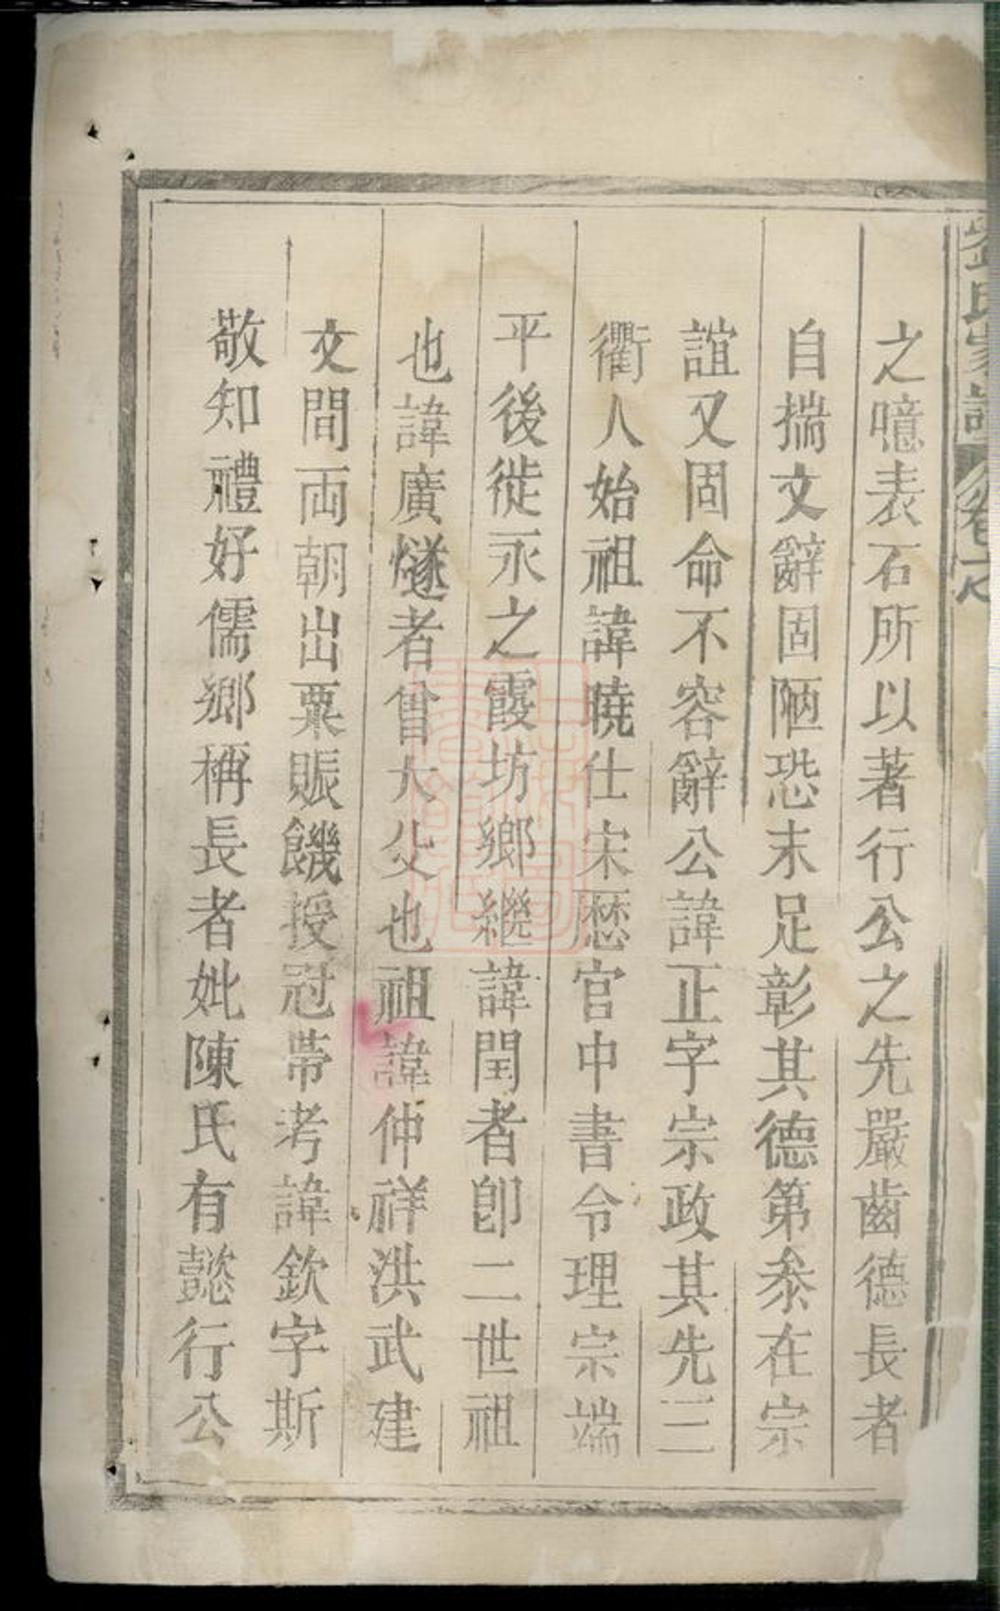 之噫表石所以著行公之先嚴齒德長者
自揣文辭固陋恐末足彰其德第叅在宗
誼又固命不容辭公諱正字宗政其先三
衢人始祖諱曉仕宋歷官中書令理宗端
平後徙永之霞坊鄉繼諱閏者卽二世祖
也諱廣燧者曾大父也祖諱仲祥洪武建
文間両朝出粟賑饑授冠帶考諱欽字斯
敬知禮好儒鄉稱長者妣陳氏有懿行公